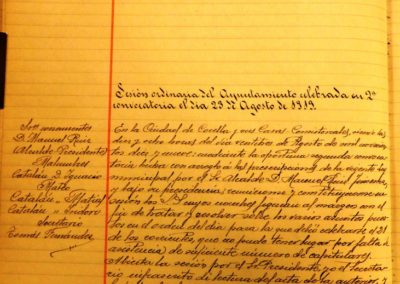 Sesión ordinaria del Ayuntamiento celebrada en 2ª
convocatoria el dia 23 de Agosto de 1919.
D. Manuel Ruiz
Alcalde Presidente
Malumbres
Catalan D. Ignacio
Catalan D. Matias
Catalan
Secretario
Tomás Fernández
En la Ciudad de Corella y sus Casas Consistoriales, siendo las
diez y ocho horas del dia veintitres de Agosto de mil novecien
tos diez y nueve; mediante la oportuna segunda convoca
toria hecha con arreglo á las prescripciones de la vigente ley
municipal por el Sr. Alcalde D. Manuel Ruiz
y bajo su presidencia
sesión los S.S. cuyos nombres figuran al margen con el
fin de tratar y resolver sobre los varios asuntos pues
tos en el orden del dia para la que debió celebrarse el 21
de los corrientes, que no pudo tener lugar por falta de
asistencia de suficiente número de capitulares.
Abierta la sesión por el Sr. Presidente, yo el Secreta
rio infrascrito dí lectura del acta de la anterior, y